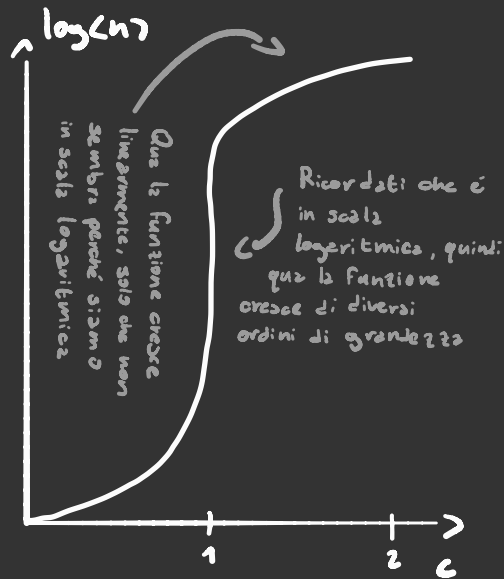 log<n>
Qua la funzione cresce
linearmente, solo che non
sembra perché siamo
in scala logaritmica
Ricordati che é
in scala
logaritmica, quindi
qua la funzione
cresce di diversi
ordini di grandezza
1
2
c